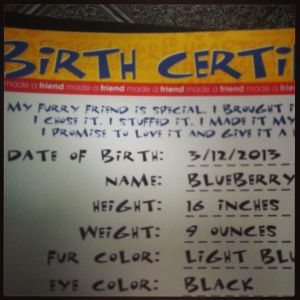 BIRTH CERTI
made a friend made a friend made a friend made a friend made a friend
MY FURRY FRIEND IS SPECIAL. I BROUGHT I
I CHOSE IT. I STUFFED IT. I MADE IT MY
I PROMISE TO LOVE IT AND GIVE IT A
DATE OF BIRTH: 3/12/2013
NAME: BLUEBERRY
HEIGHT: 16 INCHES
WEIGHT: 9 OUNCES
FUR COLOR: LIGHT BLU
EYE COLOR: BLACK